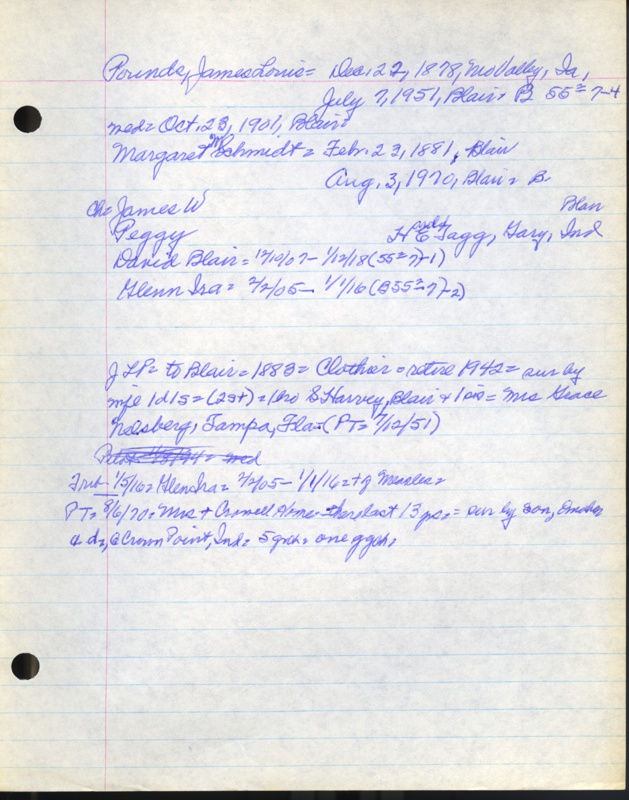 Pounds, James Louis = Dec. 22, 1878, Mo Valley, Ia,
July 7, 1951, Blair, B 55=7-4
med = Oct. 23, 1901, Blair =
Margaret M Schmidt = Feb. 23, 1881, Blair
Aug. 3, 1970, Blair = B.
Ch = James W Blair
Peggy H E Tagg, Gary, Ind
David Blair = 12/10/07 - 1/12/18 (55=7-1)
Glenn Ira = 2/2/05 - 1/1/16 (B55=7-2)
JLP = to Blair = 1883 = Clothier = retire 1942 = sur by
wife 1d 1s = (2s+) = bro S Harvey, Blair + 1 sis = Mrs Grace
Tampa, Fla = (PT = 7/12/51)
Trib 1/5/16 = Glen Ira = 2/2/05 - 1/1/16 = + of Measles =
PT = 8/6/70 = Mrs + Crowell Home last 13 = sur by son, Omaha
& d, @ Crown Point, Ind = 5 gch = one ggch,